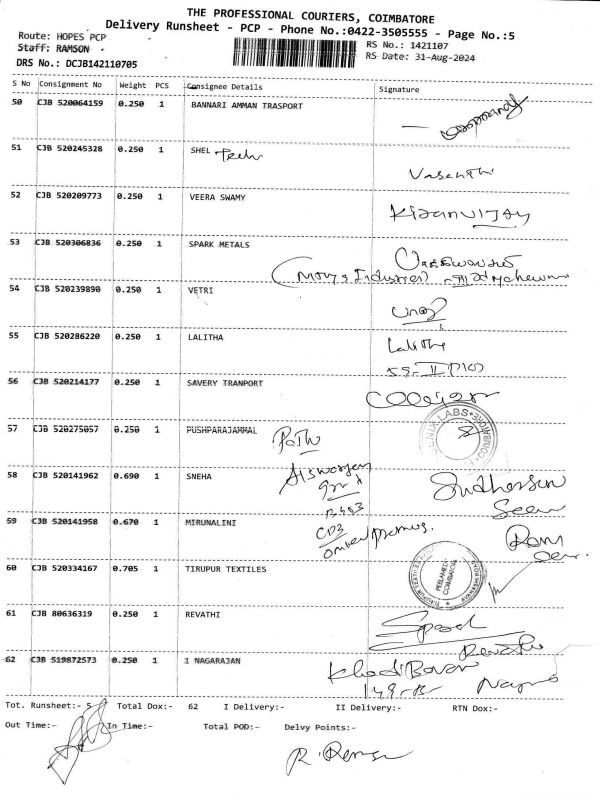 THE PROFESSIONAL COURIERS, COIMBATORE
Delivery Runsheet - PCP - Phone No.:0422-3505555 - Page No.:5
Route: HOPES PCP
RS No.: 1421107
Staff: RAMSON
RS Date: 31-Aug-2024
DRS No.: DCJB142110705
S No Consignment No Weight PCS Consignee Details Signature
50 CJB 520064159 0.250 1 BANNARI AMMAN TRASPORT
51 CJB 520245328 0.250 1 SHEL Tech
Vasanthi
52 CJB 520209773 0.250 1 VEERA SWAMY
Kiranvijay
53 CJB 520306836 0.250 1 SPARK METALS
54 CJB 520239890 0.250 1 VETRI
55 CJB 520286220 0.250 1 LALITHA
Lalitha
56 CJB 520214177 0.250 1 SAVERY TRANPORT
57 CJB 520275057 0.250 1 PUSHPARAJAMMAL
58 CJB 520141962 0.690 1 SNEHA
59 CJB 520141958 0.670 1 MIRUNALINI
60 CJB 520334167 0.705 1 TIRUPUR TEXTILES
PEELAMEDU
COIMBATORE
61 CJB 80636319 0.250 1 REVATHI
Revathi
62 CJB 519872573 0.250 1 1 NAGARAJAN
Tot. Runsheet:- 5 Total Dox:- 62 I Delivery:- II Delivery:- RTN Dox:-
Out Time:- In Time:- Total POD:- Delvy Points:-